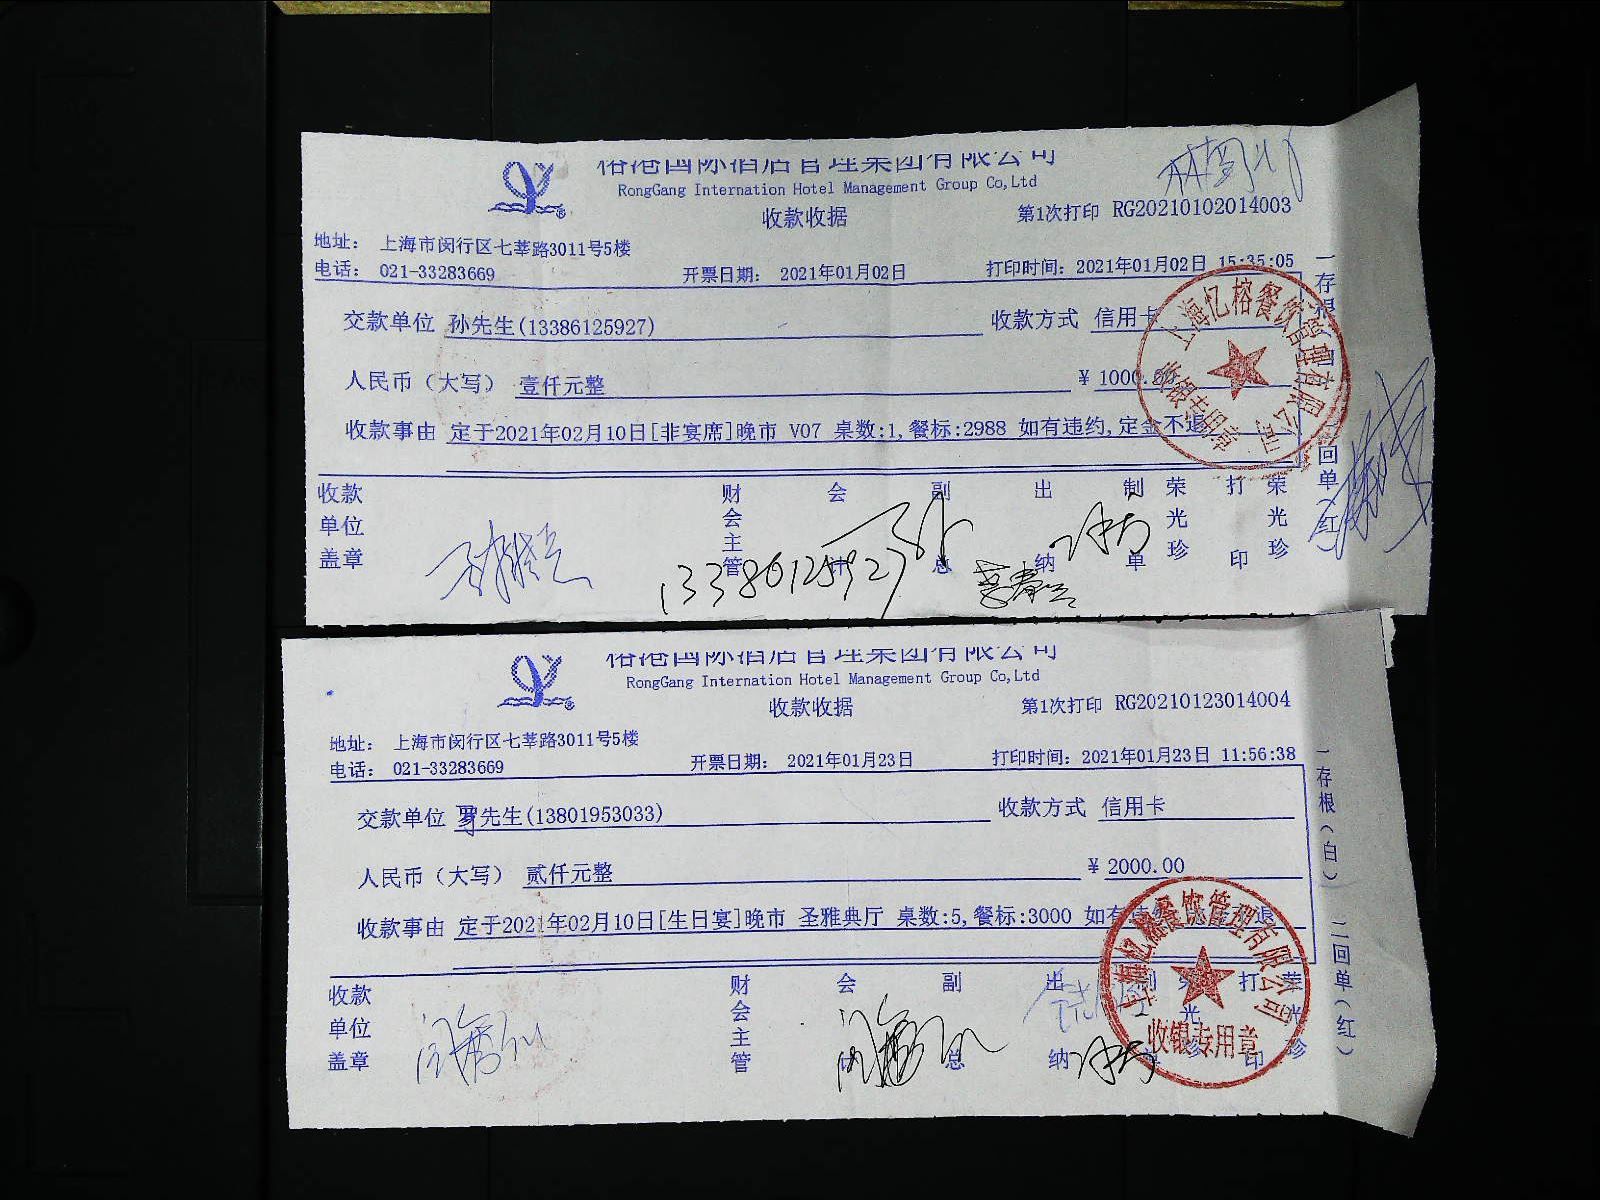 榕港国际酒店管理集团有限公司
RongGang Internation Hotel Management Group Co,Ltd
收款收据
第1次打印 RG20210102014003
地址： 上海市闵行区七莘路3011号5楼
电话： 021-33283669 开票日期： 2021年01月02日 打印时间：2021年01月02日 15:35:05
交款单位 孙先生(13386125927) 收款方式 信用卡
人民币（大写） 壹仟元整 ¥ 1000.00
收款事由 定于2021年02月10日[非宴席]晚市 V07 桌数:1,餐标:2988 如有违约,定金不退
收款单位盖章 财会主管 会计 副总 出纳 制单 荣光珍 打印 荣光珍
13386125927
一存根 二回单（红）
上海忆榕餐饮管理有限公司
收银专用章
榕港国际酒店管理集团有限公司
RongGang Internation Hotel Management Group Co,Ltd
收款收据
第1次打印 RG20210123014004
地址： 上海市闵行区七莘路3011号5楼
电话： 021-33283669 开票日期： 2021年01月23日 打印时间：2021年01月23日 11:56:38
交款单位 先生(13801953033) 收款方式 信用卡
人民币（大写） 贰仟元整 ¥ 2000.00
收款事由 定于2021年02月10日[生日宴]晚市 圣雅典厅 桌数:5,餐标:3000 如有违约,定金不退
收款单位盖章 财会主管 会计 副总 出纳 制单 荣光珍 打印 荣光珍
一存根（白） 二回单（红）
上海忆榕餐饮管理有限公司
收银专用章